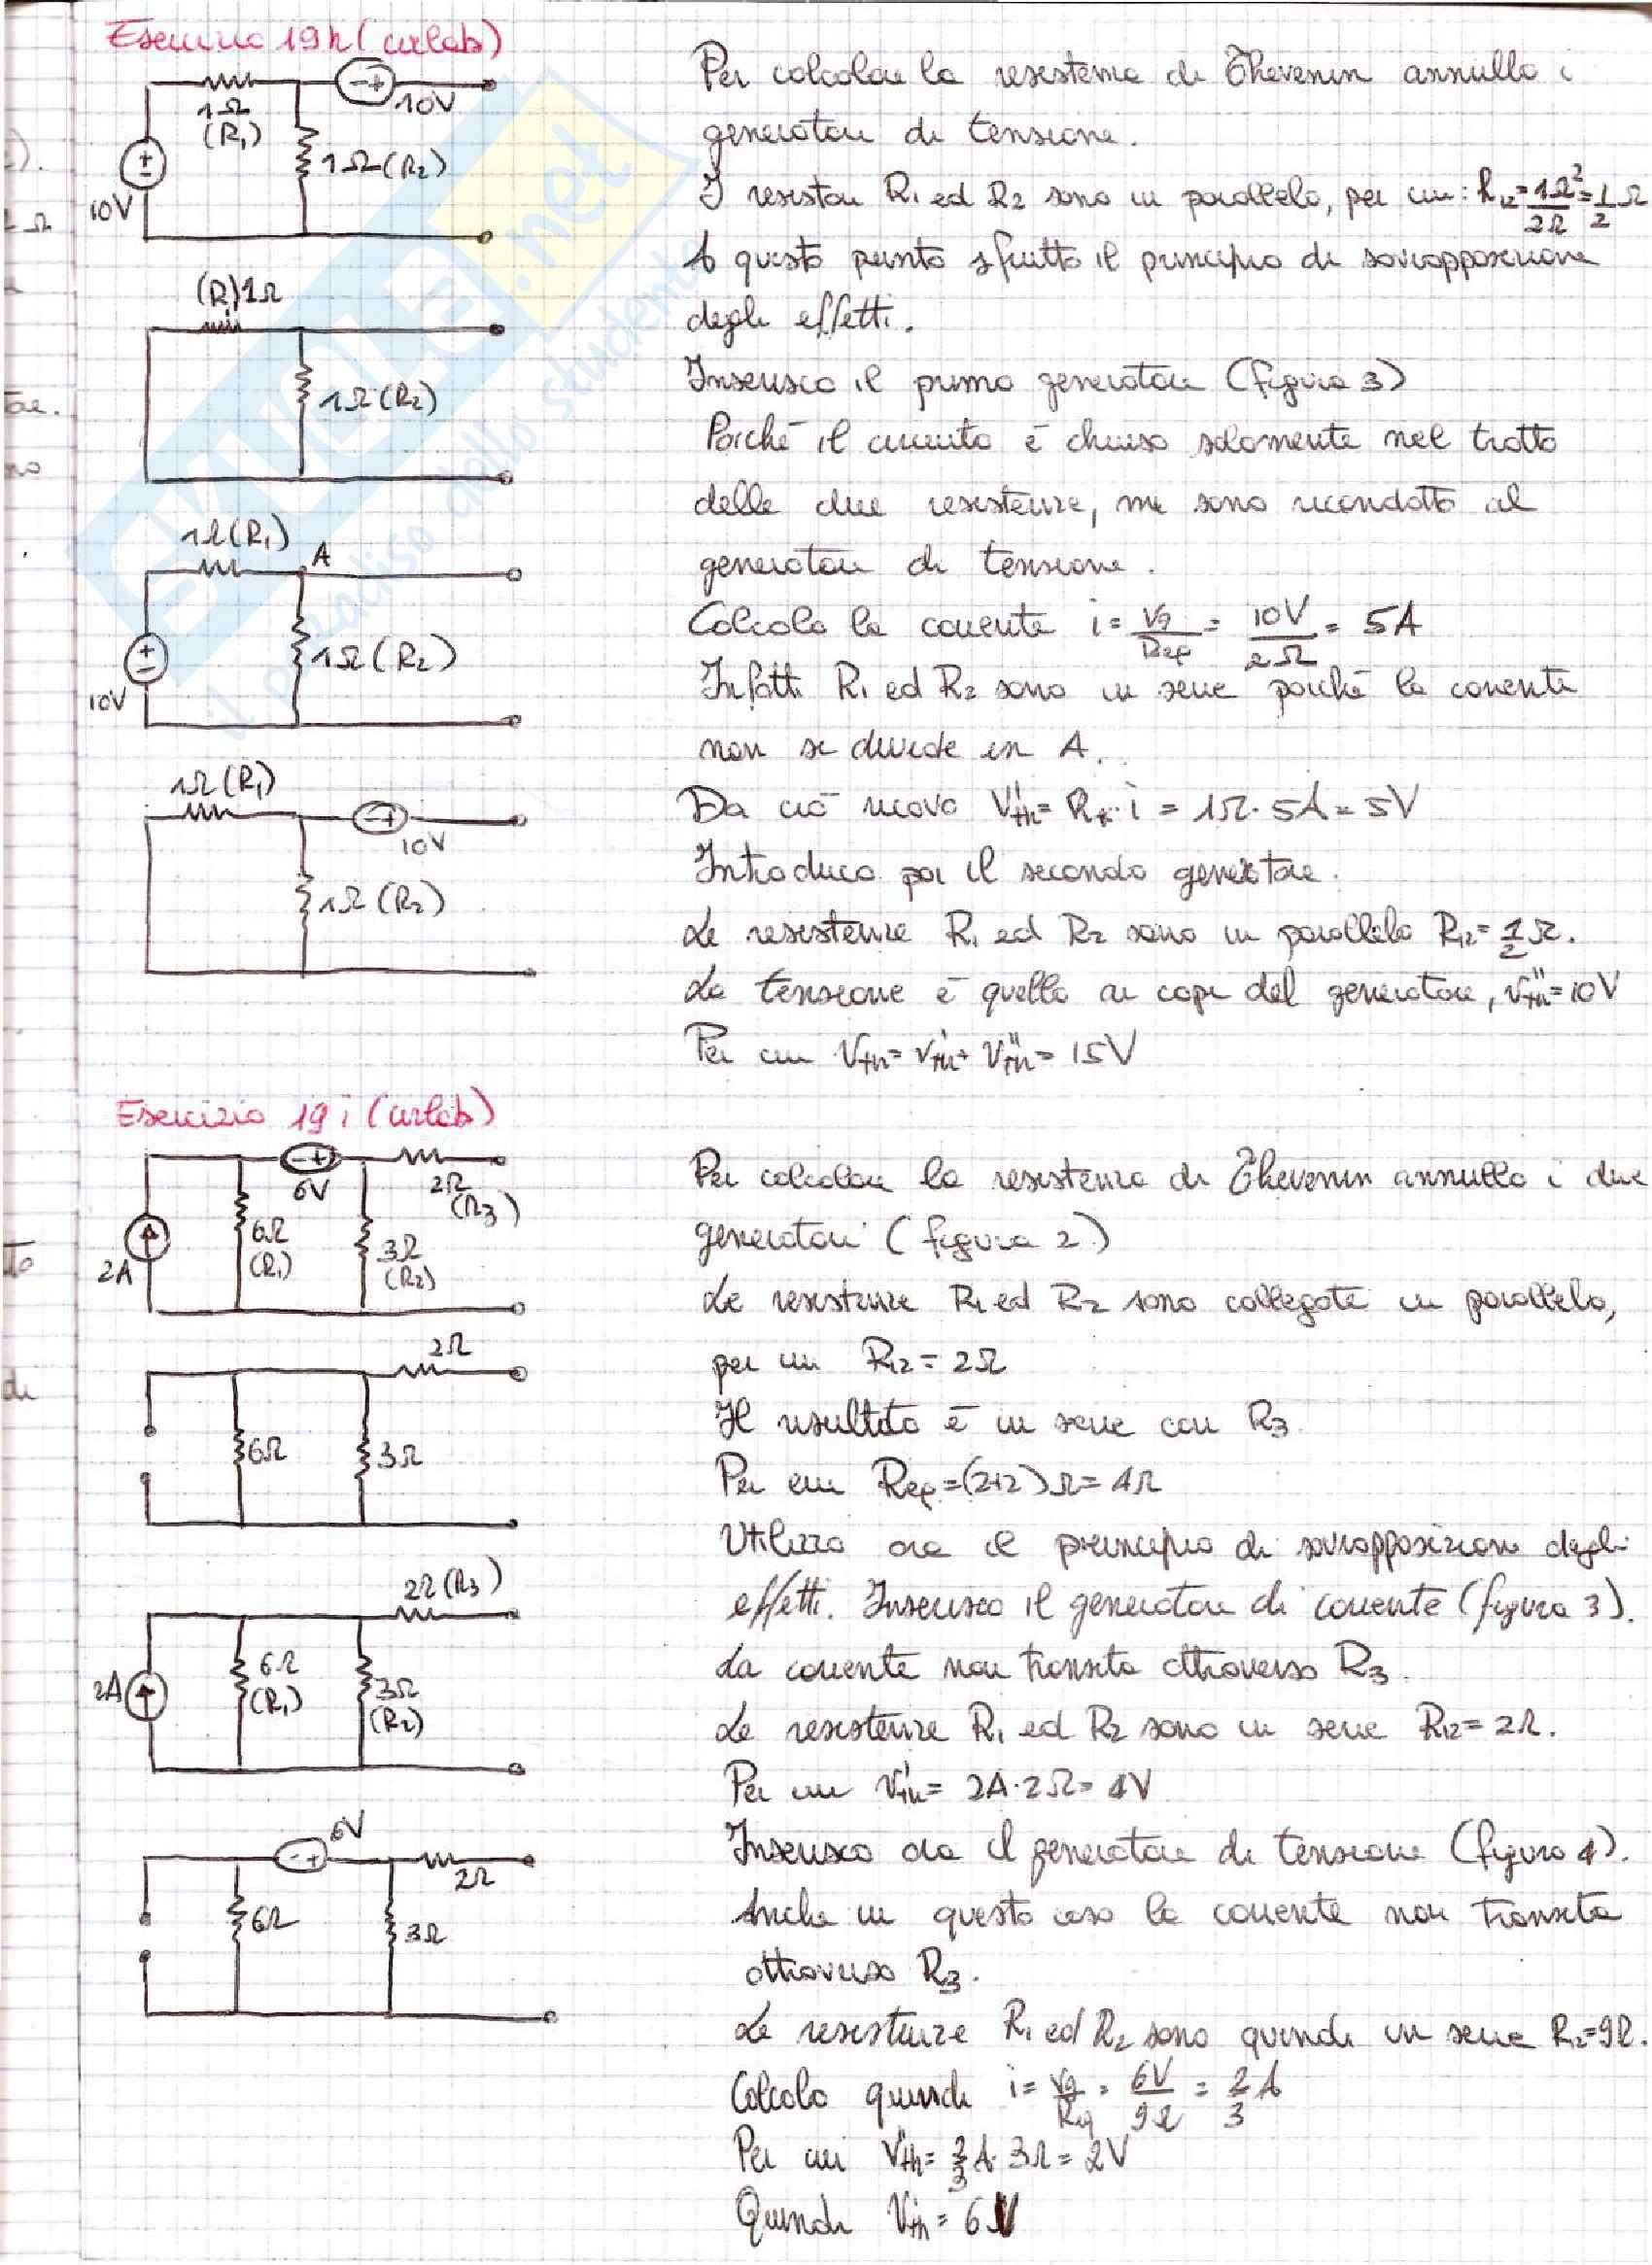 Esercizio 19h (cirlab)
1Ω
(R1)
-+
10V
1Ω (R2)
10V
Per calcolare la resistenza di Thevenin annullo i
generatori di tensione.
I resistori R1 ed R2 sono in parallelo, per cui: R12 = 1Ω²/2Ω = 1/2 Ω
A questo punto sfrutto il principio di sovrapposizione
degli effetti.
(R1) 1Ω
1Ω (R2)
Inserisco il primo generatore (figura 3)
Poiché il circuito è chiuso solamente nel tratto
delle due resistenze, mi sono ricondotto al
generatore di tensione.
1Ω (R1)
A
1Ω (R2)
10V
Calcolo la corrente i = Vg/Req = 10V/2Ω = 5A
Infatti R1 ed R2 sono in serie poiché la corrente
non si divide in A.
1Ω (R1)
-+
10V
1Ω (R2)
Da ciò ricavo V'th = Rx · i = 1Ω · 5A = 5V
Introduco poi il secondo generatore.
Le resistenze R1 ed R2 sono in parallelo R12 = 1/2 Ω.
La tensione è quella ai capi del generatore, V''th = 10V
Per cui Vth = V'th + V''th = 15V
Esercizio 19i (cirlab)
-+
6V
2Ω
(R3)
6Ω
(R1)
3Ω
(R2)
2A
Per calcolare la resistenza di Thevenin annullo i due
generatori (figura 2)
Le resistenze R1 ed R2 sono collegate in parallelo,
per cui R12 = 2Ω
Il risultato è in serie con R3.
Per cui Req = (2+2)Ω = 4Ω
2Ω
6Ω
3Ω
Utilizzo ora il principio di sovrapposizione degli
effetti. Inserisco il generatore di corrente (figura 3).
La corrente non transita attraverso R3.
Le resistenze R1 ed R2 sono in serie R12 = 2Ω.
Per cui V'th = 2A · 2Ω = 4V
2Ω (R3)
6Ω
(R1)
3Ω
(R2)
2A
Inserisco ora il generatore di tensione (figura 4).
Anche in questo caso la corrente non transita
attraverso R3.
Le resistenze R1 ed R2 sono quindi in serie R12 = 9Ω.
6V
-+
2Ω
6Ω
3Ω
Calcolo quindi i = Vg/Req = 6V/9Ω = 2/3 A
Per cui V''th = 2/3 A · 3Ω = 2V
Quindi Vth = 6V
SKUOLA.net
il paradiso dello studente